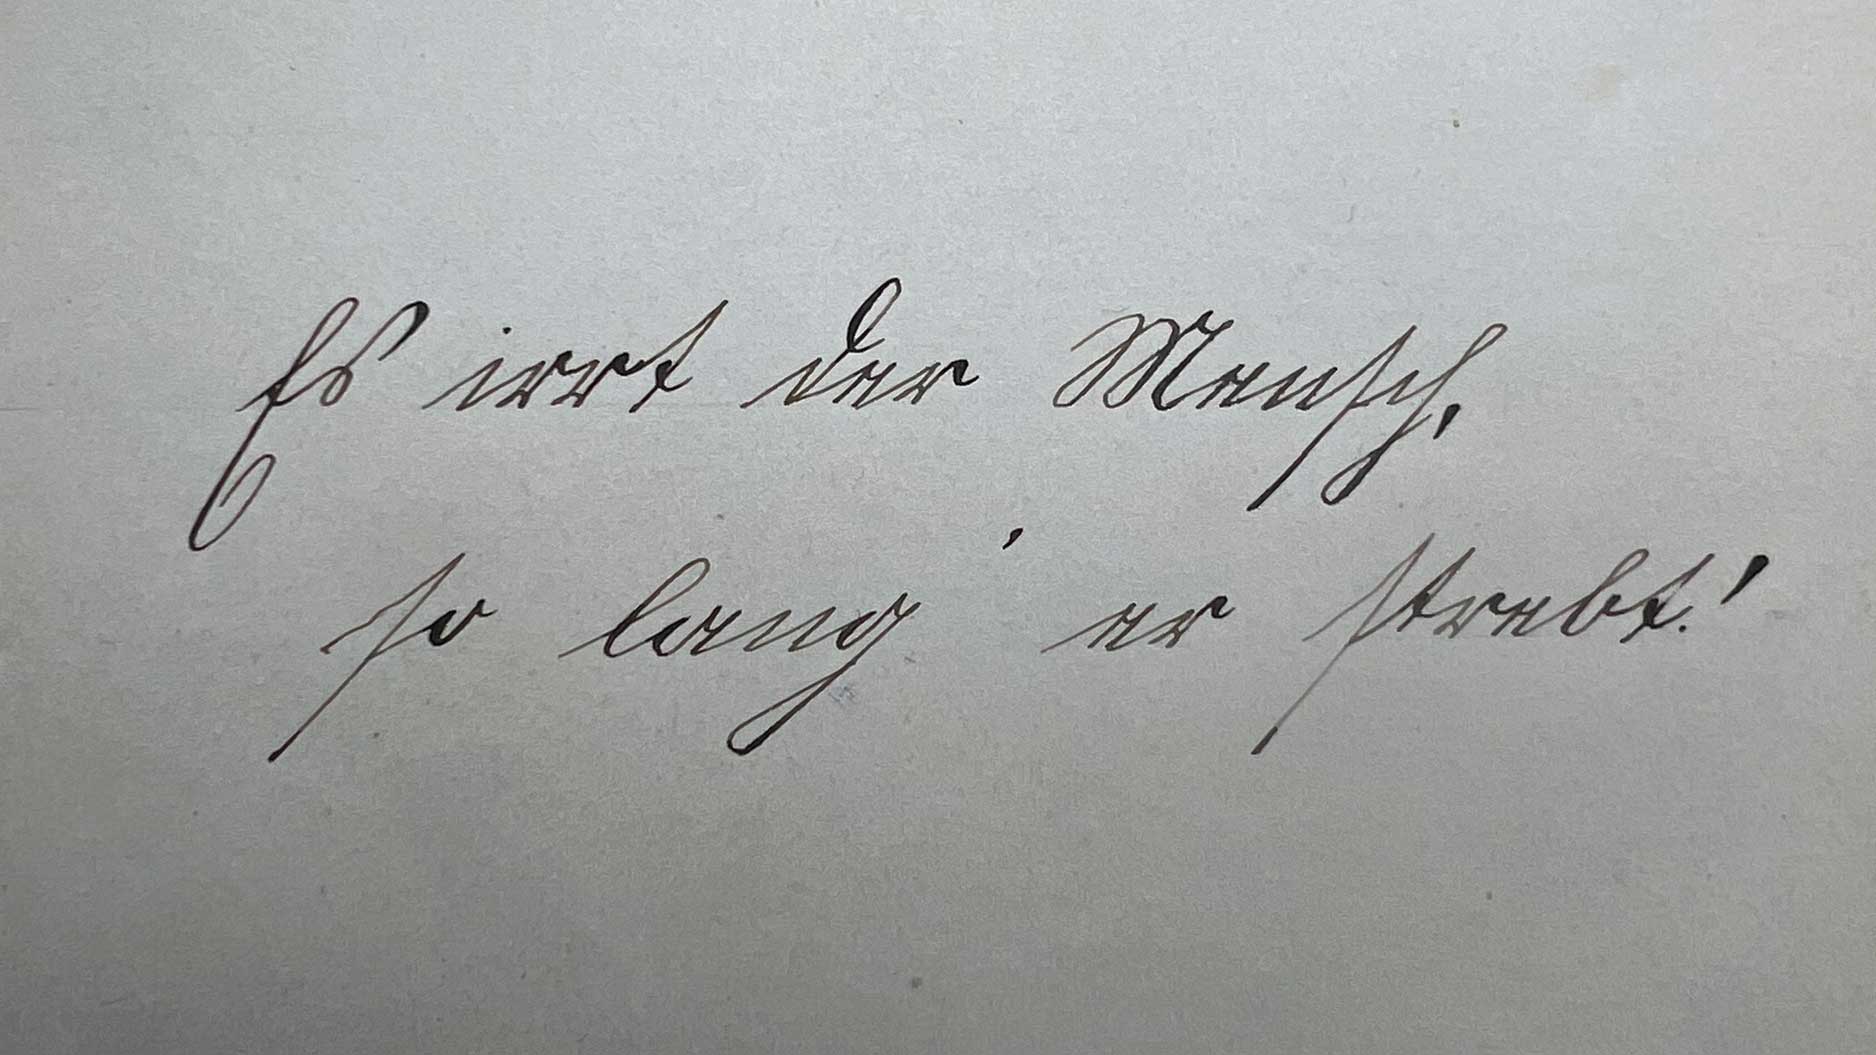 Es irrt der Mensch,
so lang' er strebt!